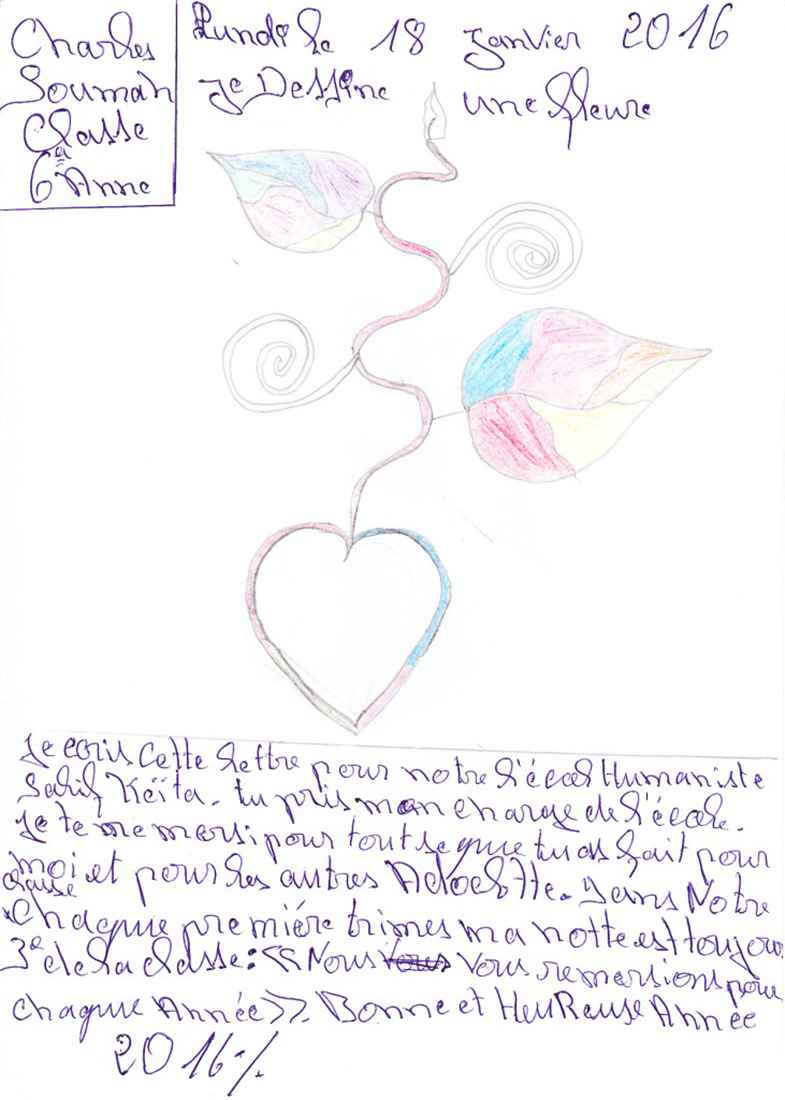 Charles
Soumah
Classe
6è Anne
Lundi le 18 Janvier 2016
Je Dessine une fleure
Je ecris Cette lettre pour notre l'écol Humaniste
Salif Keïta. tu pris man charge de l'école.
Je te remersi pour tout se que tu as fait pour
moi et pour les autres AdoclTte. Dans Notre
classe
Chaque première trimes ma notte est toujou
3e de la classe: << Nous Vous remersions pour
chaque Année >>. Bonne et HeuReuse Année
2016